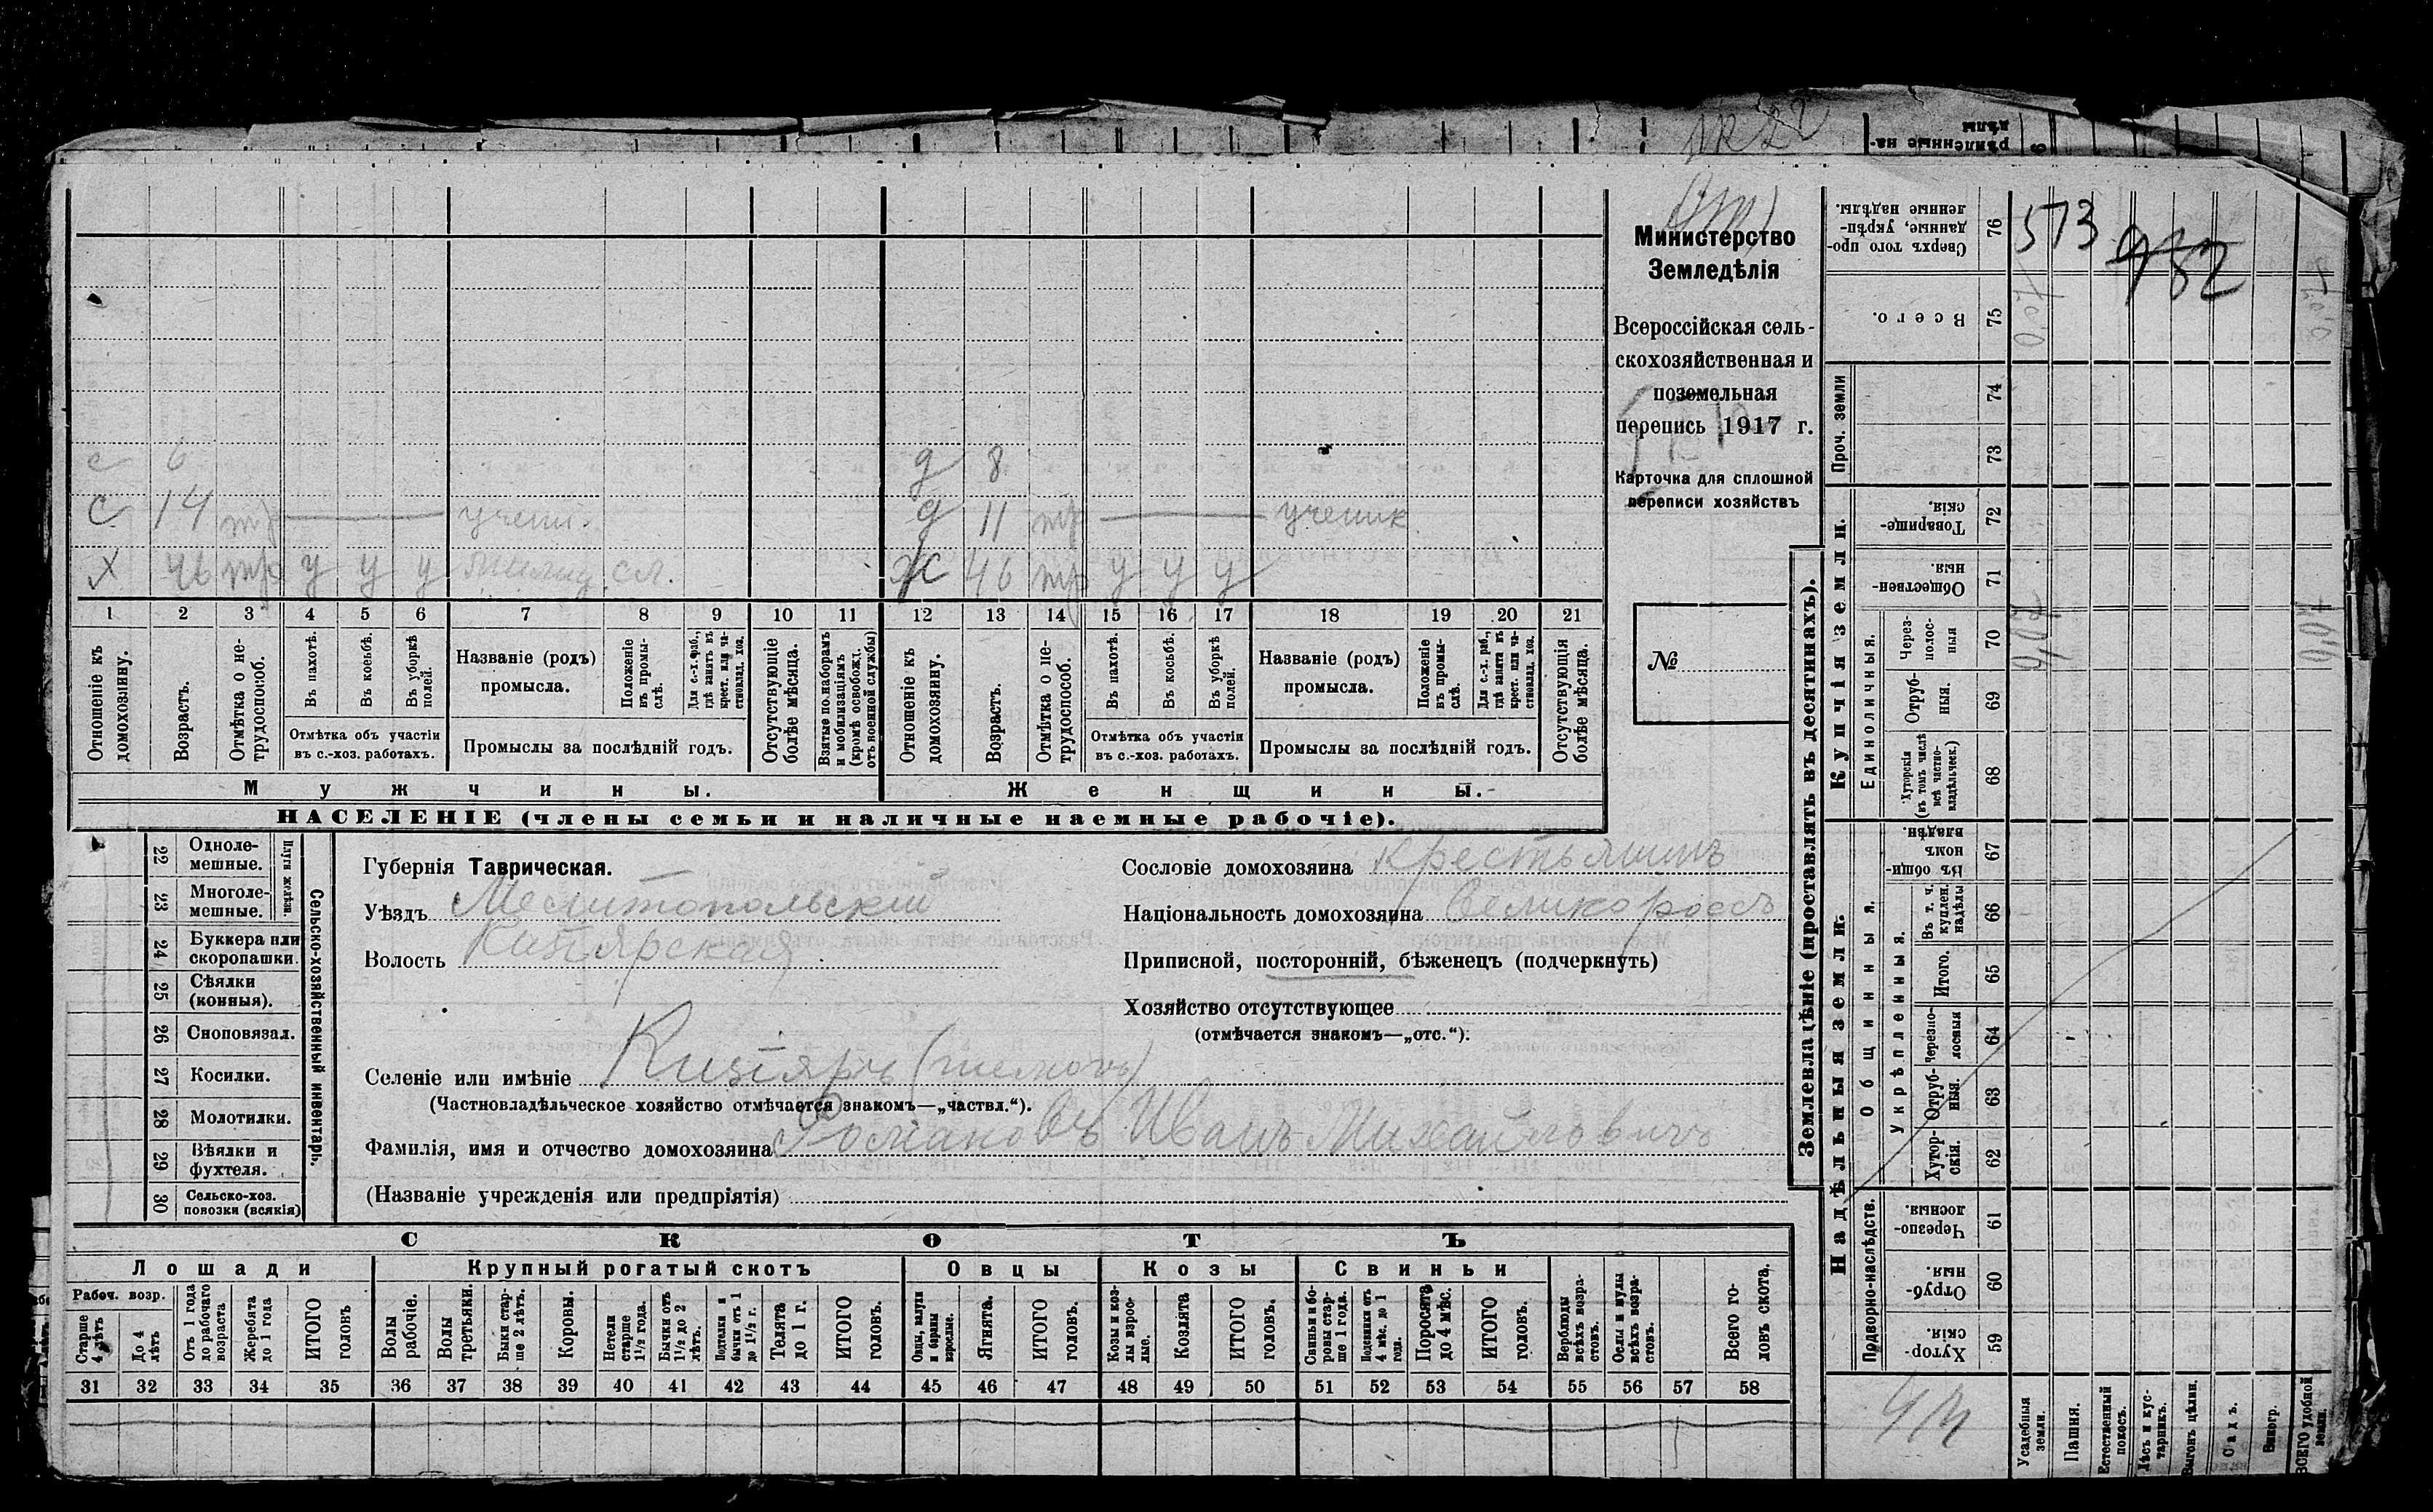 573
982
Министерство
Земледѣлія
Всероссійская сель-
скохозяйственная и
поземельная
перепись 1917 г.
Карточка для сплошной
переписи хозяйствъ
№
с 6
д 8
с 14
учени.
д 11
ученик
х 46
у у у
ж 46
у у у
1 2 3 4 5 6 7 8 9 10 11 12 13 14 15 16 17 18 19 20 21
Отношеніе къ домохозяину.
Возрастъ.
Отмѣтка о не-трудоспособ.
Въ пахотѣ.
Въ косьбѣ.
Въ уборкѣ полей.
Отмѣтка объ участіи
въ с.-хоз. работахъ.
Названіе (родъ)
промысла.
Положеніе въ промы-слѣ.
Для с.-х. раб., гдѣ занятъ въ крест. или ча-стновлад. хоз.
Промыслы за послѣдній годъ.
Отсутствующіе болѣе мѣсяца.
Взятые по наборамъ и мобилизаціямъ (кромѣ освобожд. отъ военной службы)
Отношеніе къ домохозяину.
Возрастъ.
Отмѣтка о не-трудоспособ.
Въ пахотѣ.
Въ косьбѣ.
Въ уборкѣ полей.
Отмѣтка объ участіи
въ с.-хоз. работахъ.
Названіе (родъ)
промысла.
Положеніе въ промы-слѣ.
Для с.-х. раб., гдѣ занята въ крест. или ча-стновлад. хоз.
Промыслы за послѣдній годъ.
Отсутствующія болѣе мѣсяца.
Мужчины.
Женщины.
НАСЕЛЕНІЕ (члены семьи и наличные наемные рабочіе).
22 Одноле-мешные.
23 Многоле-мешные.
Плуги желѣзн.
24 Буккера или скоропашки.
25 Сѣялки (конныя).
26 Сноповязал.
27 Косилки.
28 Молотилки.
29 Вѣялки и фухтеля.
30 Сельско-хоз. повозки (всякія)
Сельско-хозяйственный инвентарь.
Губернія Таврическая.
Уѣздъ Мелитопольскій
Волость Кизіярская
Сословіе домохозяина крестьянинъ
Національность домохозяина Великороссъ
Приписной, посторонній, бѣженецъ (подчеркнуть)
Хозяйство отсутствующее
(отмѣчается знакомъ—„отс.“).
Селеніе или имѣніе Кизіяръ
(Частновладѣльческое хозяйство отмѣчается знакомъ—„частвл.“).
Фамилія, имя и отчество домохозяина Романовъ Иванъ Михайловичъ
(Названіе учрежденія или предпріятія)
СКОТЪ
Лошади
Крупный рогатый скотъ
Овцы
Козы
Свиньи
Рабоч. возр.
Старше 4 лѣтъ
До 4 лѣтъ
Отъ 1 года до рабочаго возраста
Жеребята до 1 года
ИТОГО головъ
Волы рабочіе.
Волы третьяки.
Быки стар-ше 2 лѣтъ.
Коровы.
Нетели старше 1½ года.
Бычки отъ 1½ до 2 лѣтъ.
Подтелки и бычки отъ 1 до 1½ г.
Телята до 1 г.
ИТОГО головъ.
Овцы, валухи и бараны взрослые.
Ягнята.
ИТОГО головъ.
Козы и коз-лы взрос-лые.
Козлята
ИТОГО головъ.
Свиньи и бо-ровы стар-ше 1 года.
Подсвинки отъ 4 мѣс. до 1 года.
Поросята до 4 мѣс.
ИТОГО головъ.
Верблюды всѣхъ возра-стовъ.
Ослы и мулы всѣхъ возра-стовъ.
Всего го-ловъ скота.
31 32 33 34 35 36 37 38 39 40 41 42 43 44 45 46 47 48 49 50 51 52 53 54 55 56 57 58
Землевладѣніе (проставлять въ десятинахъ).
Сверхъ того про-данные, укрѣп-ленные надѣлы. 76
Всего. 75
Проч. земли
74
73
Купчія земли.
Товарище-скія. 72
Обществен-ныя. 71
Единоличныя.
Черезпо-лос-ныя 70
Отруб-ныя. 69
Хуторскія (въ томъ числѣ всѣ частно-владѣльческ.) 68
Надѣльныя земли.
Общинныя.
Въ общин-номъ владѣн. 67
Укрѣпленныя.
Въ т. ч. куплен. надѣлы 66
Итого. 65
Черезпо-лосныя 64
Отруб-ныя. 63
Хутор-скія. 62
Подворно-наслѣдств.
Черезпо-лосныя. 61
Отруб-ныя. 60
Хутор-скія. 59
Усадебныя земли.
Пашня.
Естественный покосъ.
Лѣсъ и кус-тарникъ.
Выгонъ цѣлин.
Садъ.
Виногр.
ВСЕГО удобной земли.